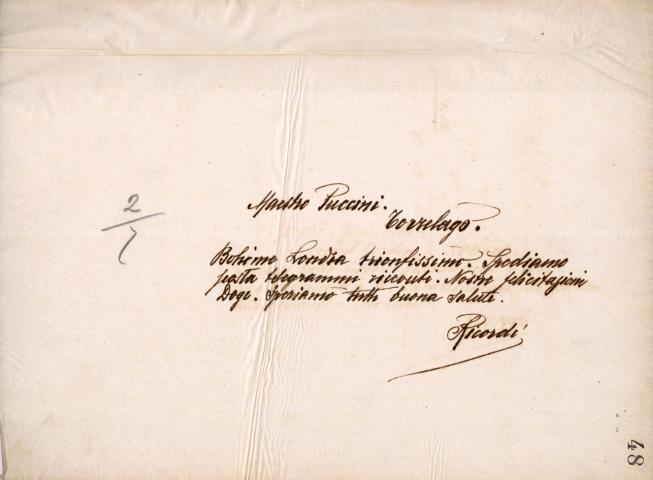 2/7
Maestro Puccini.
Torrelago.
Bohème Londra trionfissimo. Spediamo
posta telegrammi ricevuti. Nostre felicitazioni
Doge. Speriamo tutti buona salute.
Ricordi
48